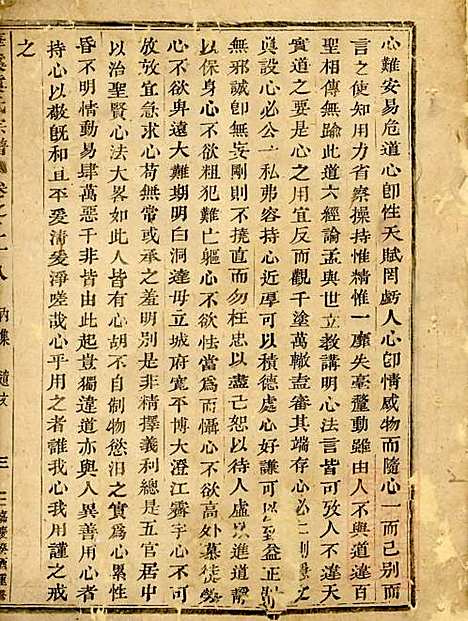 心難安易危道心卽性天賦罔虧人心卽情感物而隨心一而已别而
言之使知用力省察操持惟精惟一靡失毫釐動雖由人不與道違百
聖相傳無踰此道六經論孟與世立教講明心法言皆可攷人不違天
實道之要是心之用宜反而觀千塗萬轍直審其端存心必
眞設心必公一私弗容持心近厚可以積德處心好謙可以 益正則
無邪誠卽無妄剛則不撓直而勿枉忠以盡己恕以待人虛以
以保身心不欲粗犯難亡軀心不欲怯當爲而懾心不欲高外慕徒勞
心不欲卑遠大難期明白洞達毋立城府寬平博大澄江霽宇心不可
放放宜急求心苟無常或承之羞明别是非精擇義利總是五官居中
以治聖賢心法大畧如此人皆有心胡不自制物慾汨之實爲心累性
昏不明情動易肆萬惡千非皆由此起豈獨違道亦與人異善用心者
持心以敬旣和且平愛清愛淨嗟哉心乎用之者誰我心我用謹之戒
之
宗譜 卷之十八
三